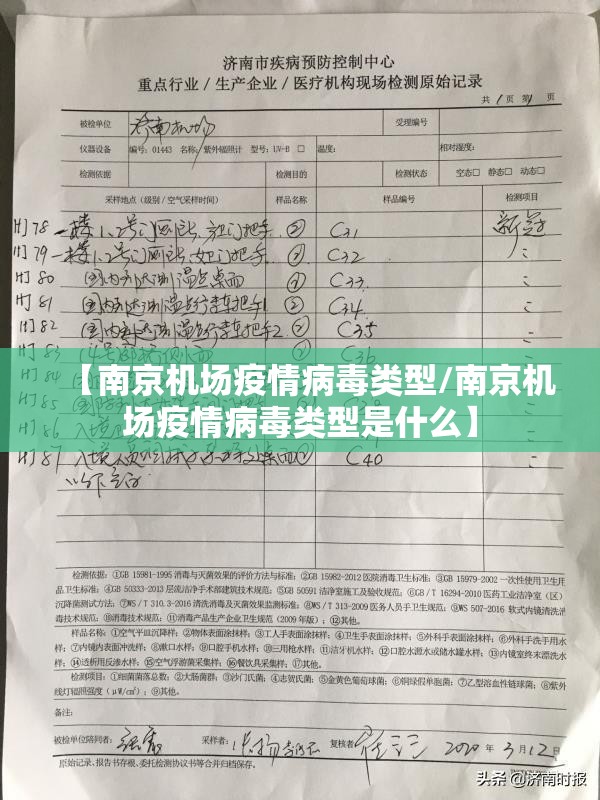 济南市疾病预防控制中心
重点行业/生产企业/医疗机构现场检测原始记录
共1页 第1页
被检单位 济南机场 受理编号
仪器设备 编号:01443 名称:紫外辐照计 型号:UV-B □ 温度: 相对湿度:
检测依据 检测目的 检测状态 空态□ 静态□ 动态□
采样地点(级别/空气采样时间) 样品名称 样品编号 检测项目
HJ78 一楼1、2号门厕所、女门把手 ② C31 新冠
HJ79 一楼1、2号门厕所、女门把手 ② C32
HJ80 国内到达测温点桌面 C33
HJ81 国内到达测温点行李车把手1 ② C34
HJ82 国内到达测温点行李车把手2 ② C35
HJ83 C36
HJ84
【南京机场疫情病毒类型/南京机
HJ85
场疫情病毒类型是什么】
HJ86
HJ87 C40
以下空白
检测依据:①GB 15981-1995 消毒与灭菌效果的评价方法与标准;②GB 15982-2012 医院消毒卫生标准;③GB 15979-2002 一次性使用卫生用
品卫生标准;④GB 50333-2013 层流洁净手术部建筑技术规范;⑤GB 50591 洁净室施工及验收规范;⑥GB/T 16294-2010 医药工业洁净室(区)
沉降菌测试方法;⑦WS/T 310.3-2016 清洗消毒及灭菌效果监测标准;⑧WS/T 313-2009 医务人员手卫生规范;⑨WS 507-2016 软式内镜清洗消
毒技术规范;⑩消毒技术规范;⑪消毒产品生产企业卫生规范(2009 年版);⑫其他。
样品名称:①空气平皿沉降样;②物体表面涂抹样;③工人手表面涂抹样;④卫生手表面涂抹样;⑤外科手表面涂抹样;⑥外科手洗手用水
样;⑦内镜内表面冲洗样;⑧漱口水样;⑨口腔手机水样;⑩三用枪水样;⑪洁牙机水样;⑫口腔水源水或储水罐水样;⑬内镜室终末漂洗水
样;⑭透析用反渗水样;⑮空气浮游菌采集样;⑯餐饮具采集样;⑰其他。
检测项目:①细菌菌落总数;②大肠菌群;③沙门氏菌;④志贺氏菌;⑤金黄色葡萄球菌;⑥铜绿假单胞菌;⑦乙型溶血性链球菌;⑧紫外
线灯辐照强度(μW/cm²);⑨其他。
备注:
被检单位陪同者: 采样者: 复核者: 2020 年 3 月 12 日
原始记录、报告书存根、委托检测协议书等合并归档保存。
头条@济南时报